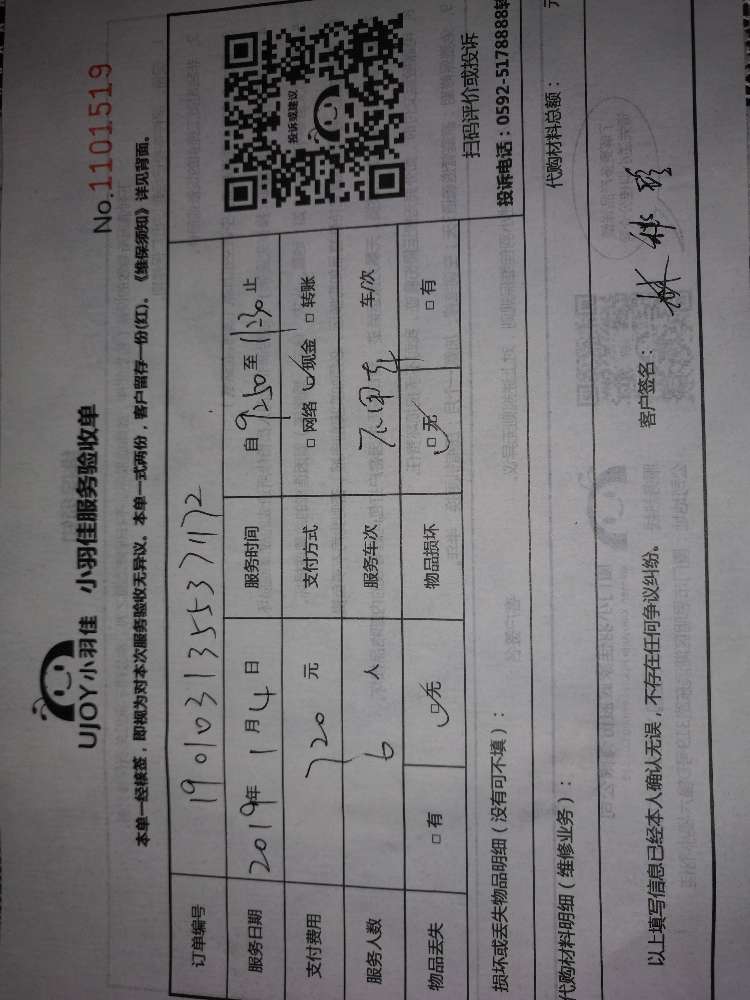 UJOY小羽佳 小羽佳服务验收单
No.1101519
本单一经核签，即视为对本次服务验收无异议。本单一式两份，客户留存一份(红)。《维保须知》详见背面。
订单编号 190103135537172
投诉或建议
服务日期 2019年 1月 4日 服务时间 自 9:50 至 11:30 止
支付费用 720 元 支付方式 □网络 ☑现金 □转账
服务人数 6 人 服务车次 不用车 车/次
物品丢失 □有 ☑无 物品损坏 ☑无 □有
扫码评价或投诉
投诉电话：0592-5178888转
损坏或丢失物品明细（没有可不填）：
代购材料明细（维修业务）： 代购材料总额： 元
以上填写信息已经本人确认无误，不存在任何争议纠纷。 客户签名：林